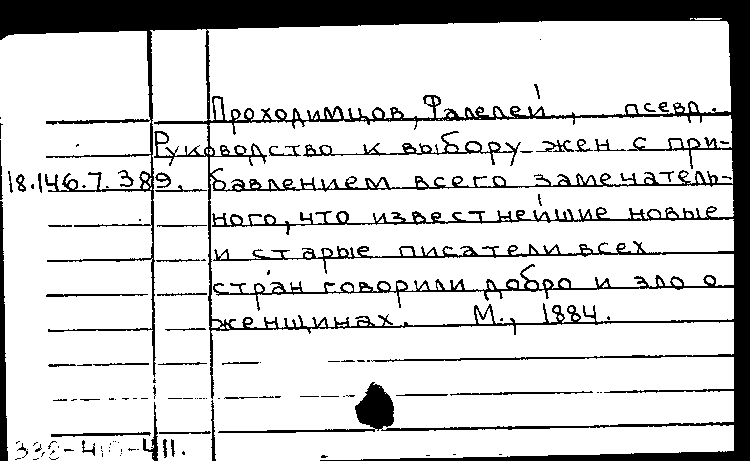 Проходимцов, Фалелей, псевд.
Руководство к выбору жен с при-
18.146.7.389. бавлением всего замечатель-
ного, что известнейшие новые
и старые писатели всех
стран говорили добро и зло о
женщинах. М., 1884.
338-410-411.